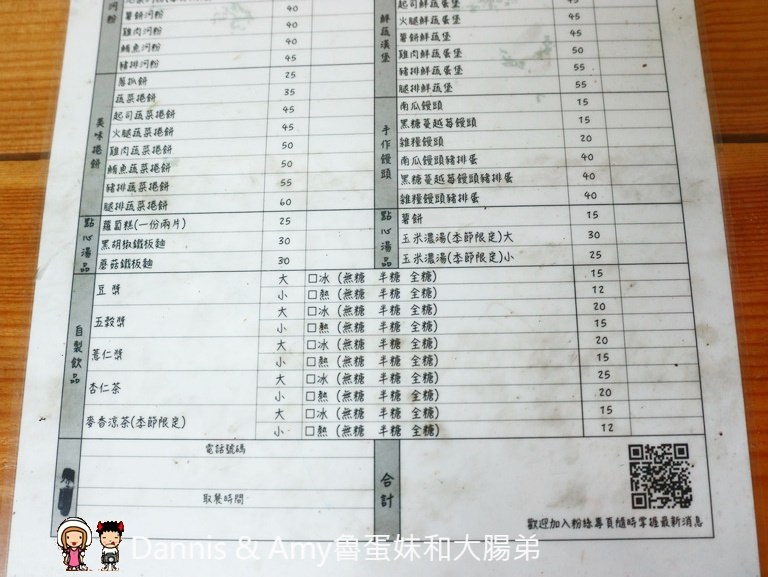 河粉
薯餅河粉 40
雞肉河粉 40
鮪魚河粉 40
豬排河粉 45
美味捲餅
蔥抓餅 25
蔬菜捲餅 35
起司蔬菜捲餅 45
火腿蔬菜捲餅 45
雞肉蔬菜捲餅 50
鮪魚蔬菜捲餅 50
豬排蔬菜捲餅 55
腿排蔬菜捲餅 60
點心湯品
蘿蔔糕(一份兩片) 25
黑胡椒鐵板麵 30
蘑菇鐵板麵 30
鮮蔬漢堡
起司鮮蔬蛋堡 45
火腿鮮蔬蛋堡 45
薯餅鮮蔬蛋堡 45
雞肉鮮蔬蛋堡 50
豬排鮮蔬蛋堡 55
腿排鮮蔬堡 55
手作饅頭
南瓜饅頭 15
黑糖蔓越莓饅頭 15
雜糧饅頭 20
南瓜饅頭豬排蛋 40
黑糖蔓越莓饅頭豬排蛋 40
雜糧饅頭豬排蛋 40
點心湯品
薯餅 15
玉米濃湯(季節限定)大 30
玉米濃湯(季節限定)小 25
自製飲品
豆漿 大 □冰 (無糖 半糖 全糖) 15
小 □熱 (無糖 半糖 全糖) 12
五穀漿 大 □冰 (無糖 半糖 全糖) 20
小 □熱 (無糖 半糖 全糖) 15
薏仁漿 大 □冰 (無糖 半糖 全糖) 20
小 □熱 (無糖 半糖 全糖) 15
杏仁茶 大 □冰 (無糖 半糖 全糖) 25
小 □熱 (無糖 半糖 全糖) 20
麥香涼茶(季節限定) 大 □冰 (無糖 半糖 全糖) 15
小 □熱 (無糖 半糖 全糖) 12
電話號碼
取餐時間
合計
歡迎加入粉絲專頁隨時掌握最新消息
Dannis & Amy魯蛋妹和大腸弟